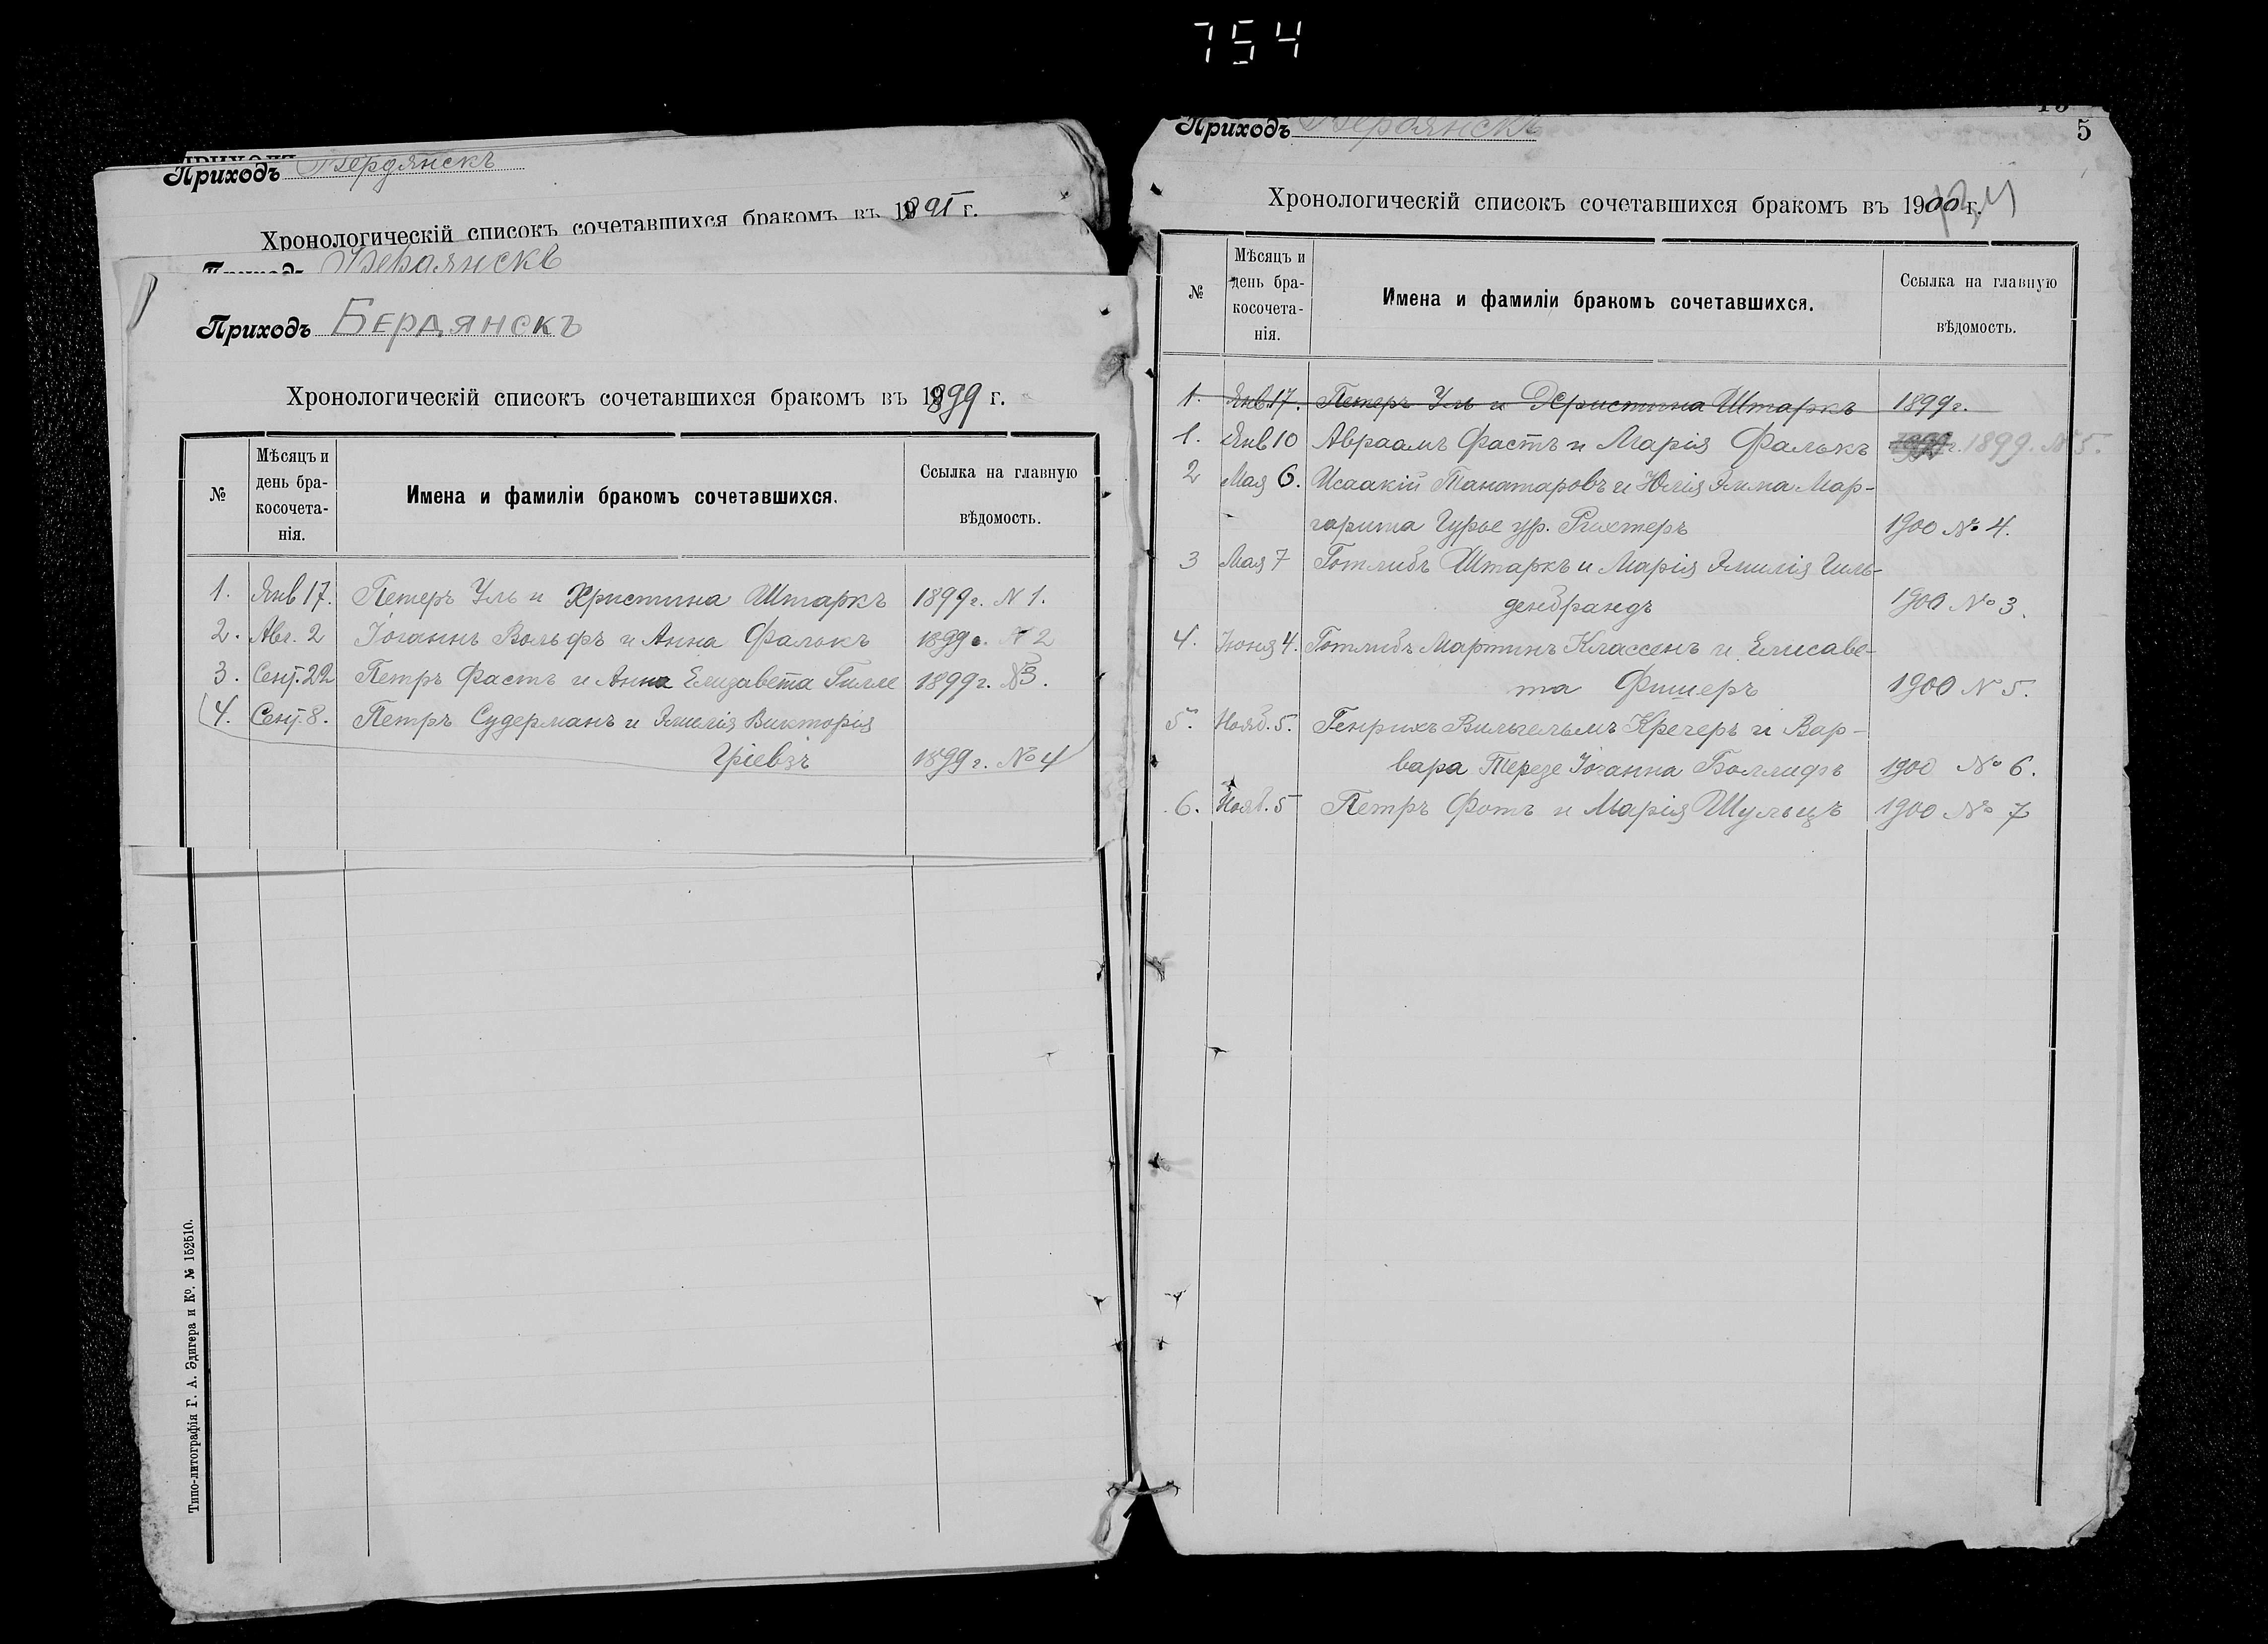 754
Приходъ Бердянскъ
Хронологическій списокъ сочетавшихся бракомъ въ 1891 г.
Бердянскъ
Приходъ Бердянскъ
Хронологическій списокъ сочетавшихся бракомъ въ 1899 г.
№ Мѣсяцъ и день бра-косочета-нія. Имена и фамиліи бракомъ сочетавшихся. Ссылка на главную вѣдомость.
1. Янв 17. Петеръ Уль и Христина Штаркъ 1899 г. N 1.
2. Авг. 2 Іоганнъ Вольфъ и Анна Фалькъ 1899 г. N 2
3. Сент. 22 Петръ Фастъ и Анна Елизавета Гилле 1899 г. N 3.
4. Сент. 8. Петръ Судерманъ и Эмилія Викторія
Гріевзъ 1899 г. № 4
Типо-литографія Г. А. Эдигера и Ко. № 152510.
5
Приходъ Бердянскъ
Хронологическій списокъ сочетавшихся бракомъ въ 1900 г.
№ Мѣсяцъ и день бра-косочета-нія. Имена и фамиліи бракомъ сочетавшихся. Ссылка на главную вѣдомость.
1. Янв. 17. Петеръ Уль и Христина Штаркъ 1899 г.
1. Янв 10 Авраамъ Фастъ и Марія Фалькъ 1899. № 5.
2 Мая 6. Исаакій Танатаровъ и Юлія Алма Мар-
гарита Гурье ур. Рихтеръ 1900 № 4.
3 Мая 7 Готлибъ Штаркъ и Марія Эмилія Гиль-
дебрандъ 1900 № 3.
4. Іюня 4. Готлибъ Мартинъ Классенъ и Елисаве-
та Фишеръ 1900 N 5.
5. Нояб. 5. Генрихъ Вильгельмъ Крегеръ и Вар-
вара Терезе Іоганна Боллифъ 1900 № 6.
6. Нояб. 5 Петръ Фотъ и Марія Шульцъ 1900 № 7